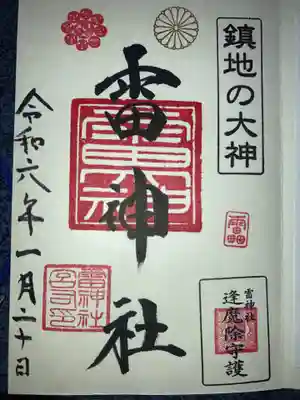 鎮地の大神
雷神社
令和六年一月二十日
雷神社
宮司印
雷神社
逢魔除守護